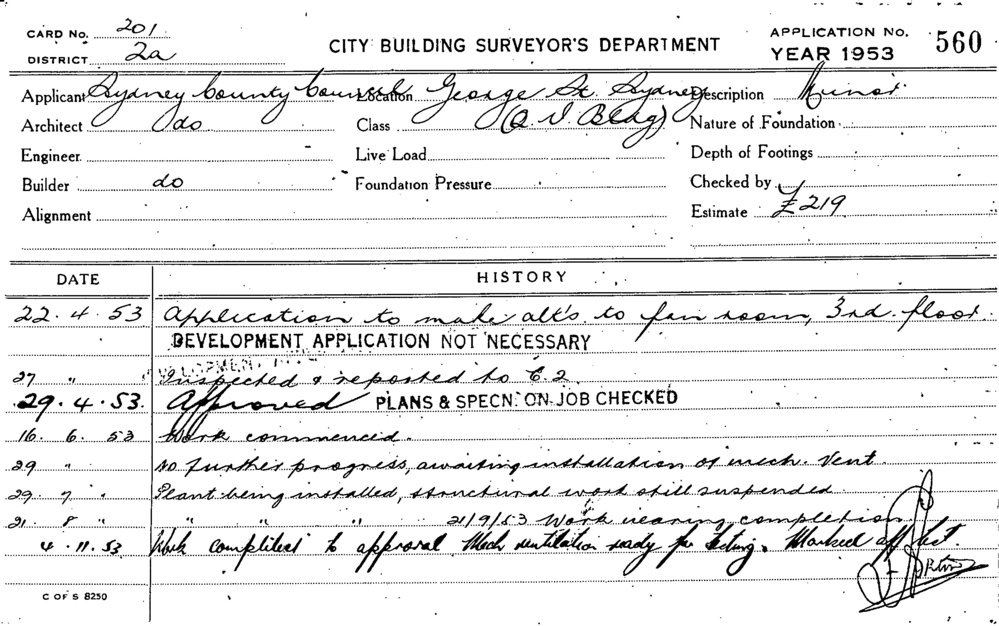 CARD No. 201
DISTRICT 2a
CITY BUILDING SURVEYOR'S DEPARTMENT
APPLICATION No. 560
YEAR 1953
Applicant Sydney County Council Location George St. Sydney Description Minor.
Architect do Class (Q V Bldg) Nature of Foundation
Engineer Live Load Depth of Footings
Builder do Foundation Pressure Checked by
Alignment Estimate £219
DATE HISTORY
22. 4. 53 Application to make alt's. to fan room, 3rd. floor.
DEVELOPMENT APPLICATION NOT NECESSARY
27 " Inspected & reported to C.2.
29. 4. 53. Approved PLANS & SPECN. ON JOB CHECKED
16. 6. 53 Work commenced.
29 " No further progress, awaiting installation of mech. Vent.
29. 7 " Plant being installed, structural work still suspended
21. 8 " " " " 21/9/53 Work nearing completion
4. 11. 53 Work completed to approval. Mech ventilation ready for testing. Marked off list.
C OF S 8250